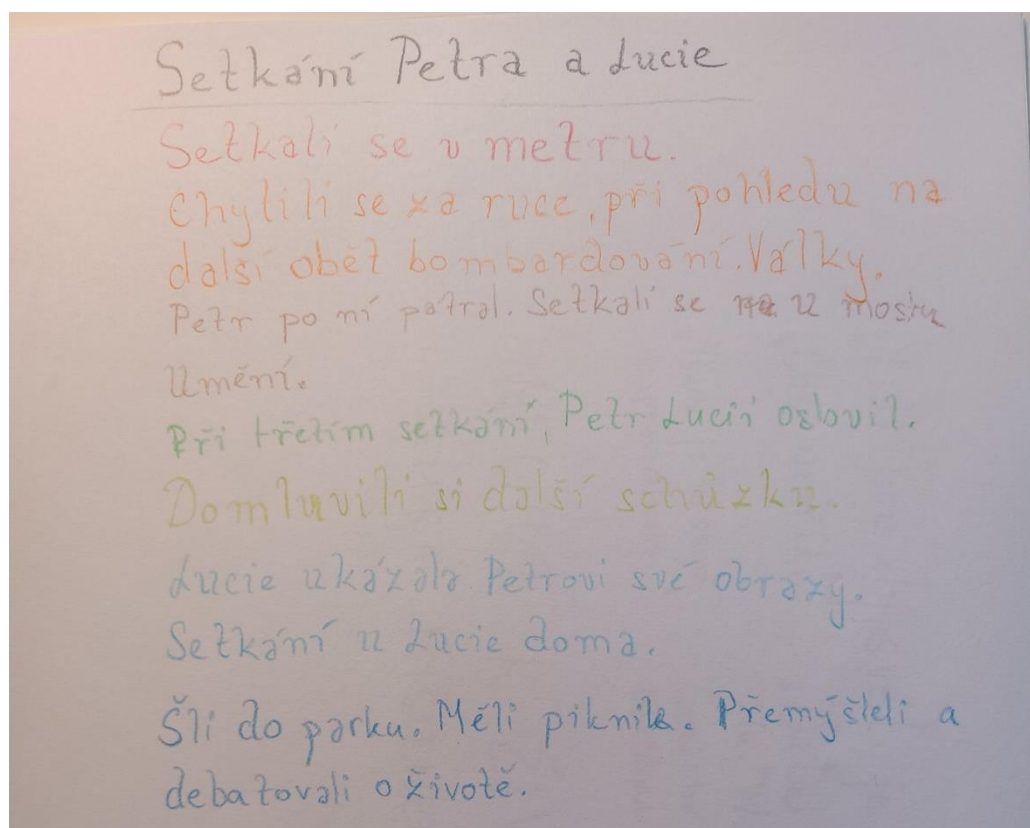 Setkání Petra a Lucie
Setkali se v metru.
Chylili se za ruce, při pohledu na
další obět bombardování. Války.
Petr po ní pátral. Setkali se na u mostu
Umění.
Při třetím setkání, Petr Lucii oslovil.
Domluvili si další schůzku.
Lucie ukázala Petrovi své obrazy.
Setkání u Lucie doma.
Šli do parku. Měli piknik. Přemýšleli a
debatovali o životě.